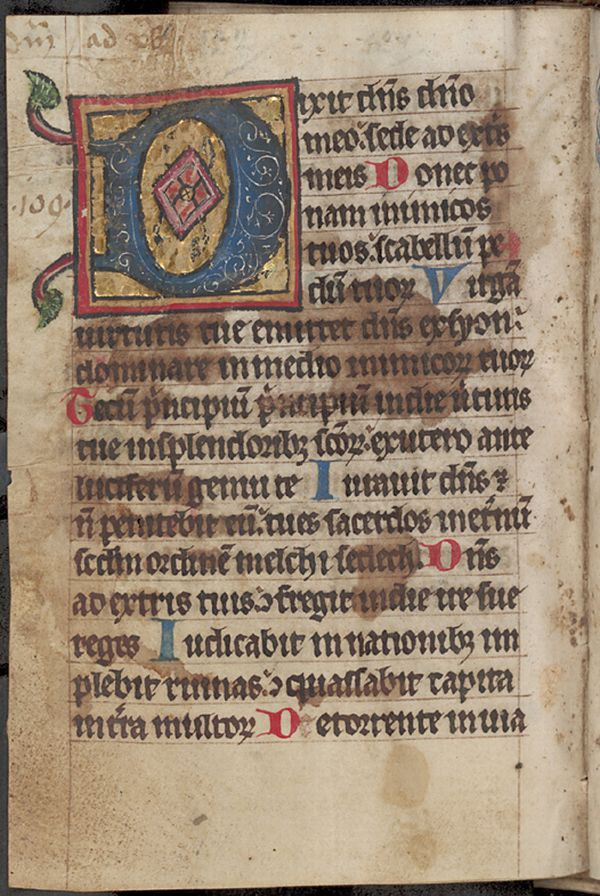 Dixit dn̄s dn̄o
meo: sede ad extͥs
meis Donec po
nam inimicos
tuos: scabellū pe
dū tuoꝝ Virgā
uirtutis tue emittet dn̄s exsyon:
dominare in medio inimicoꝝ tuoꝝ
Tecū pͥncipiū pͥncipiū in die ūtutis
tue in splendoribꝫ sc̄oꝝ: ex utero ante
luciferū genui te Iurauit dn̄s ⁊
n̄ penitebit eū: tu es sacerdos in et̄nū
scd̄m ordinē melchisedech. Dn̄s
ad extris tuis: ↄfregit in die ire sue
reges Iudicabit in nationibꝫ im
plebit ruinas: ↄquassabit capita
in t̄ra multoꝝ De torrente in uia
109